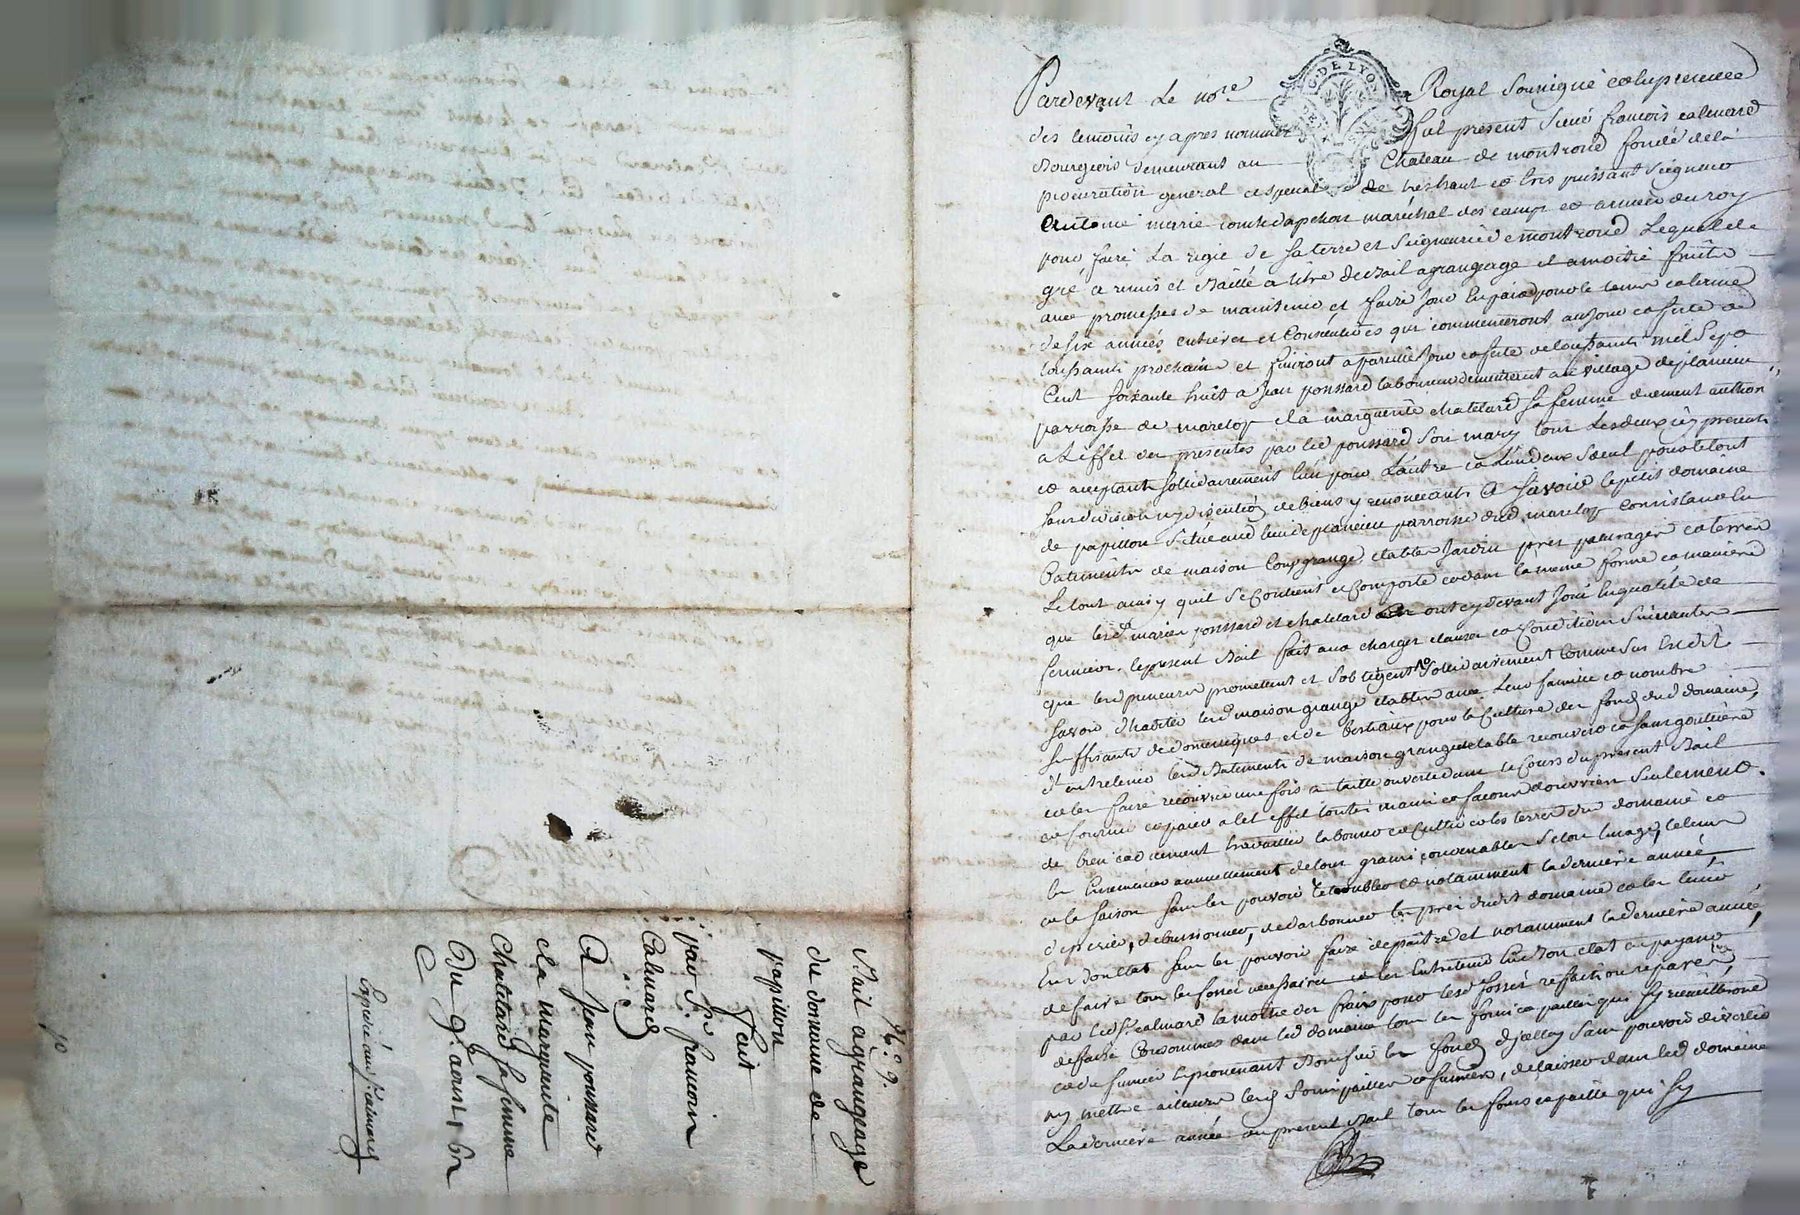 Pardevant Le no.re Royal Sousigné et en presence
des temoins cy apres nommés fut present Sieur françois calemard
Bourgeois demeurant au Chateau de montrond fondé de la
procuration general et special de tres haut et tres puissant Seigneur
Antoine marie comte d'apchon maréchal des camps et armées du roy
pour faire La regie de sa terre et Seigneurie de montrond Lequel de
gré a remis et Baillé a titre de Bail a grangeage et a moitié fruits
avec promesses de maintenir et faire jouir En paix pour le tems et terme
de six années entieres et Consecutives qui commenceront au jour et feste de
toussaints prochain et finiront a pareille jour et feste de toussaints mil Sept
Cent soixante huit a Jean ponssard laboureur demeurant au village de plancieu
parroisse de marclop et a marguerite chatelard sa femme duement authori
a L'effet des presentes par led ponssard son mary tous Les deux icy presents
et acceptants solidairement L'un pour L'autre et L'un d'eux Seul pour le tout
sans division ny discution de biens y renonceants a Savoir le petit domaine
de papillon Situé aud lieu de plancieu parroisse dud marclop consistant En
Batiments de maison Cour grange etables Jardin prés paturages et terres
Le tout ainsy qu'il Se Contient et Comporte et dans la meme forme et maniere
que lesd mariés ponssard et chatelard ont cy devant Joui En qualité de
fermiers. le present Bail fait aux charges clauses et Conditions Suivantes
que lesd preneurs promettent et s'obligent Solidairement comme Sus Est dit
savoir d'habiter lesd maison grange etables avec Leur famille et nombre
suffisants de domestiques et de bestiaux pour la Culture des fonds dud domaine,
d'entretenir lesd Batiments de maison grange etable recouverts et sans goutiere
et les faire recouvrir une fois a taille ouverte dans le Cours du present Bail
et fournir et payer a cet effet toutes mains et façons d'ouvriers Seulement.
de bien et duement travailler labourer et Cultiver les terres dud domaine et
les Ensemencer annuellement de bons grains convenables Selon l'usage, le tems
et la Saison sans les pouvoir retoubler et notamment la derniere année,
d'epierrer, debuissonner, et darbonner les prés dudit domaine et les tenir
En bon etat sans les pouvoir faire depaitre et notamment la derniere année,
de faire tous les fossés necessaires et les Entretenir En Bon etat en payant
par led S.r calmard la moitié des frais pour lesd fossés refaits ou reparés,
de faire Consommer dans led domaine tous les foins et pailles qui S'y recueilleront
et du fumier En provenant Bonifier les fonds d'jcelluy sans pouvoir divertir
ny mettre ailleurs lesd foins pailles et fumiers, de laisser dans led domaine
La derniere année du present Bail tous les foins et paille qui S'y
N.o 9.
Bail a grangeage
du domaine de
papillon
fait
par S.r françois
Calmard
A Jean ponssard
et a marguerite
chatelard sa femme
Expedié au S.r calmard